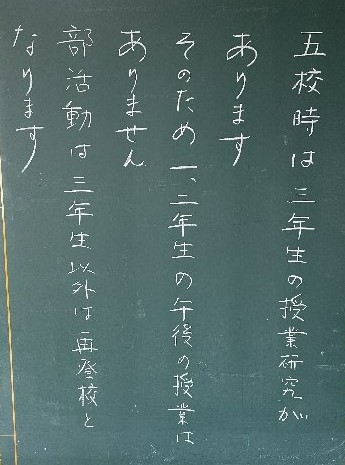 五校時は三年生の授業研究が
あります
そのため一、二年生の午後の授業は
ありません
部活動は三年生以外は再登校と
なります